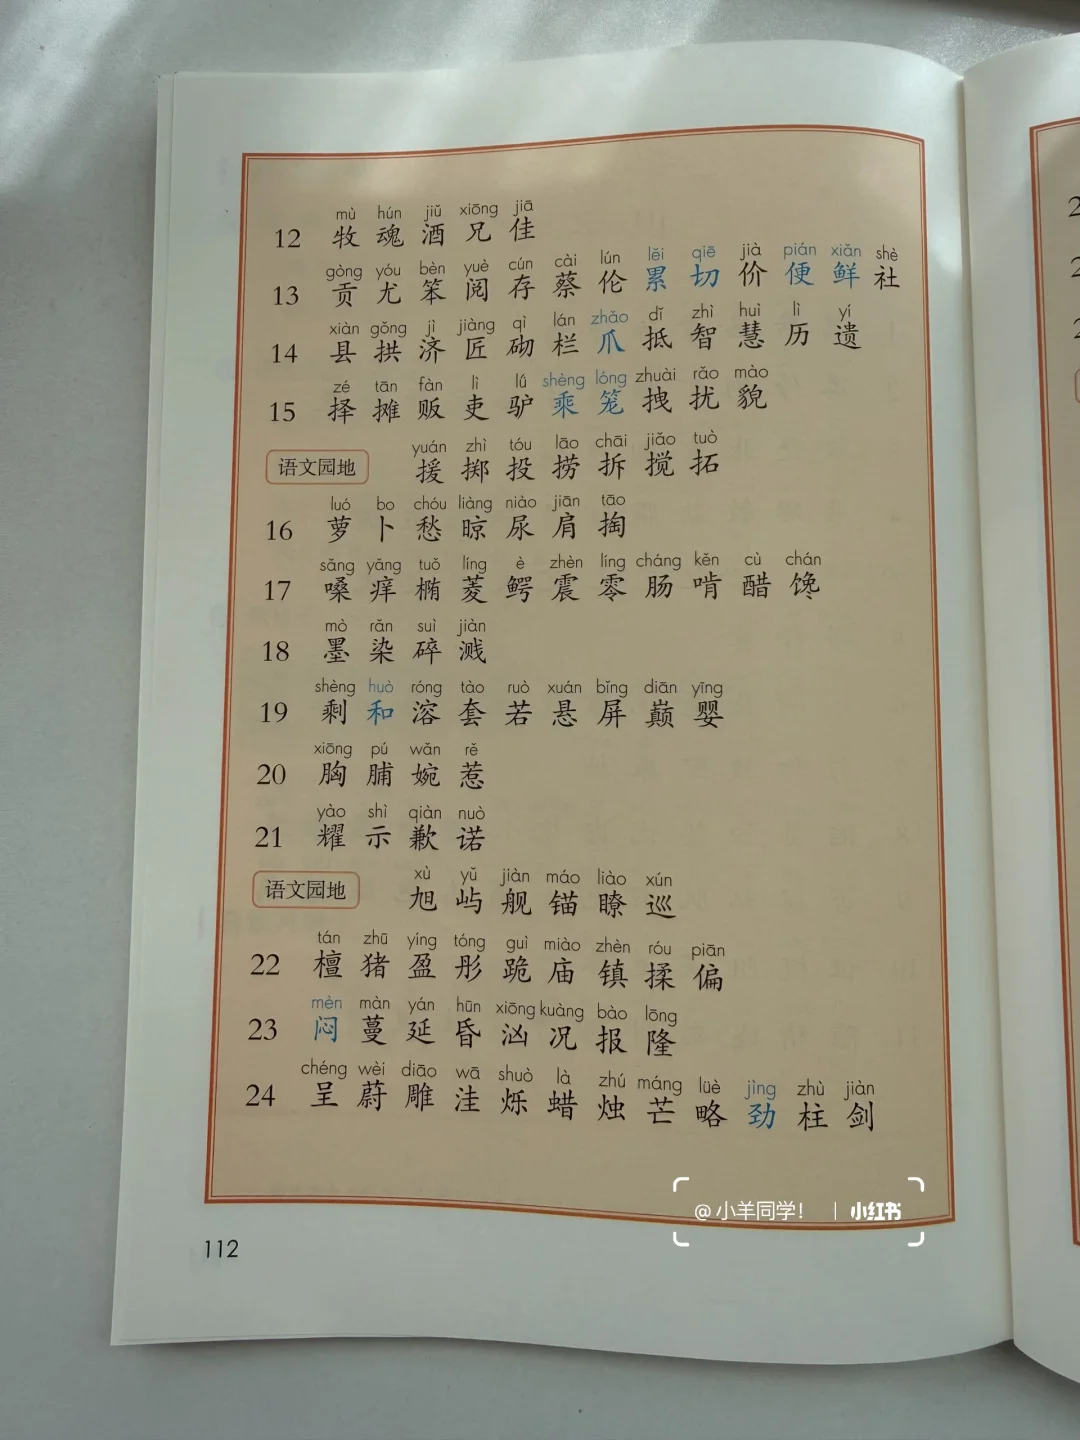 mù hún jiǔ xiōng jiā
12 牧 魂 酒 兄 佳
gòng yóu bèn yuè cún cài lún lěi qiē jià pián xiǎn shè
13 贡 尤 笨 阅 存 蔡 伦 累 切 价 便 鲜 社
xiàn gǒng jì jiàng qì lán zhǎo dǐ zhì huì lì yí
14 县 拱 济 匠 砌 栏 爪 抵 智 慧 历 遗
zé tān fàn lì lǘ shèng lóng zhuài rǎo mào
15 择 摊 贩 吏 驴 乘 笼 拽 扰 貌
yuán zhì tóu lāo chāi jiǎo tuò
语文园地 援 掷 投 捞 拆 搅 拓
luó bo chóu liàng niào jiān tāo
16 萝 卜 愁 晾 尿 肩 掏
sǎng yǎng tuǒ líng è zhèn líng cháng kěn cù chán
17 嗓 痒 椭 菱 鳄 震 零 肠 啃 醋 馋
mò rǎn suì jiàn
18 墨 染 碎 溅
shèng huò róng tào ruò xuán bǐng diān yīng
19 剩 和 溶 套 若 悬 屏 巅 婴
xiōng pú wǎn rě
20 胸 脯 婉 惹
yào shì qiàn nuò
21 耀 示 歉 诺
xù yǔ jiàn máo liào xún
语文园地 旭 屿 舰 锚 瞭 巡
tán zhū yíng tóng guì miào zhèn róu piān
22 檀 猪 盈 彤 跪 庙 镇 揉 偏
mèn màn yán hūn xiōng kuàng bào lōng
23 闷 蔓 延 昏 汹 况 报 隆
chéng wèi diāo wā shuò là zhú máng lüè jìng zhù jiàn
24 呈 蔚 雕 洼 烁 蜡 烛 芒 略 劲 柱 剑
@小羊同学！ | 小红书
112